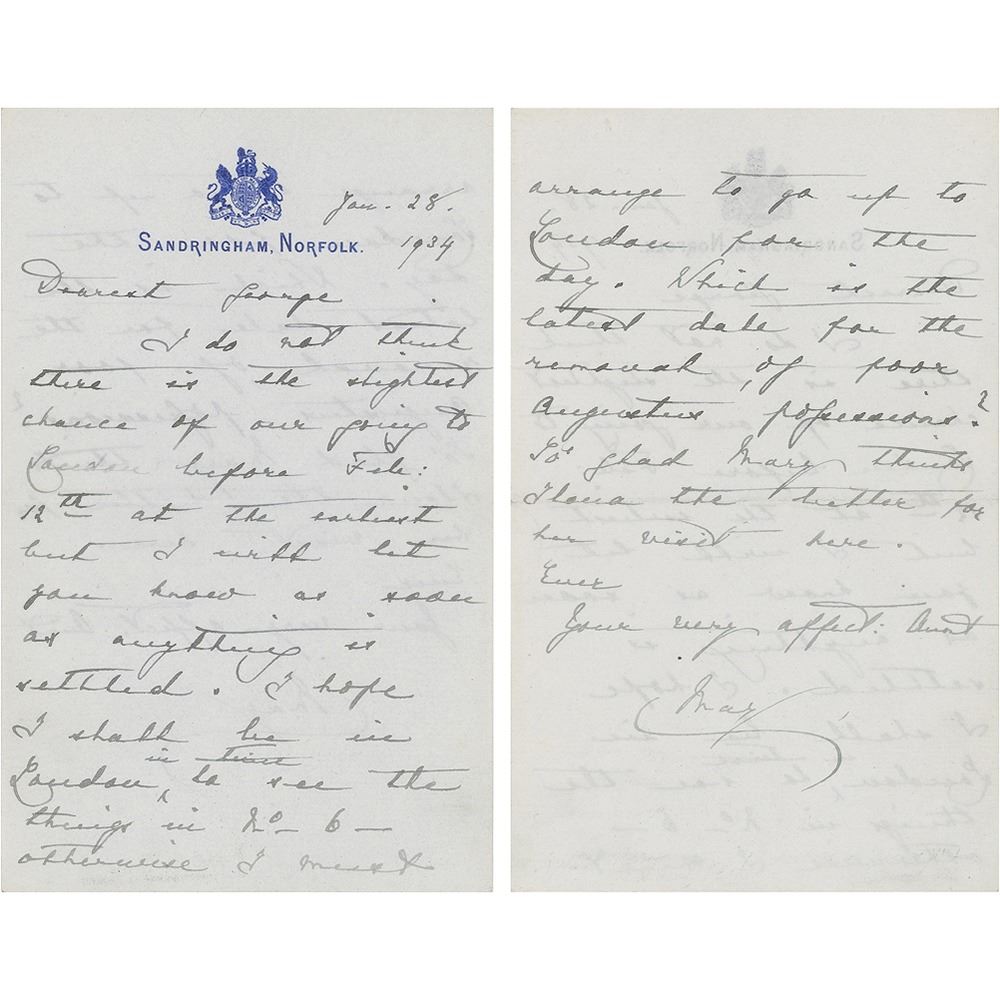 Jan. 28.
SANDRINGHAM, NORFOLK.
1934
Dearest George
I do not think
there is the slightest
chance of our going to
London before Feb:
12th at the earliest
but I will let
you know as soon
as anything is
settled. I hope
I shall be in
London, in time to see the
things in No- 6 -
otherwise I must
arrange to go up to
London for the
day. Which is the
latest date for the
removal, of poor
Augustus possessions?
So glad Mary thinks
Ilona the better for
her visit here.
Ever
Your very affect: Aunt
Mary